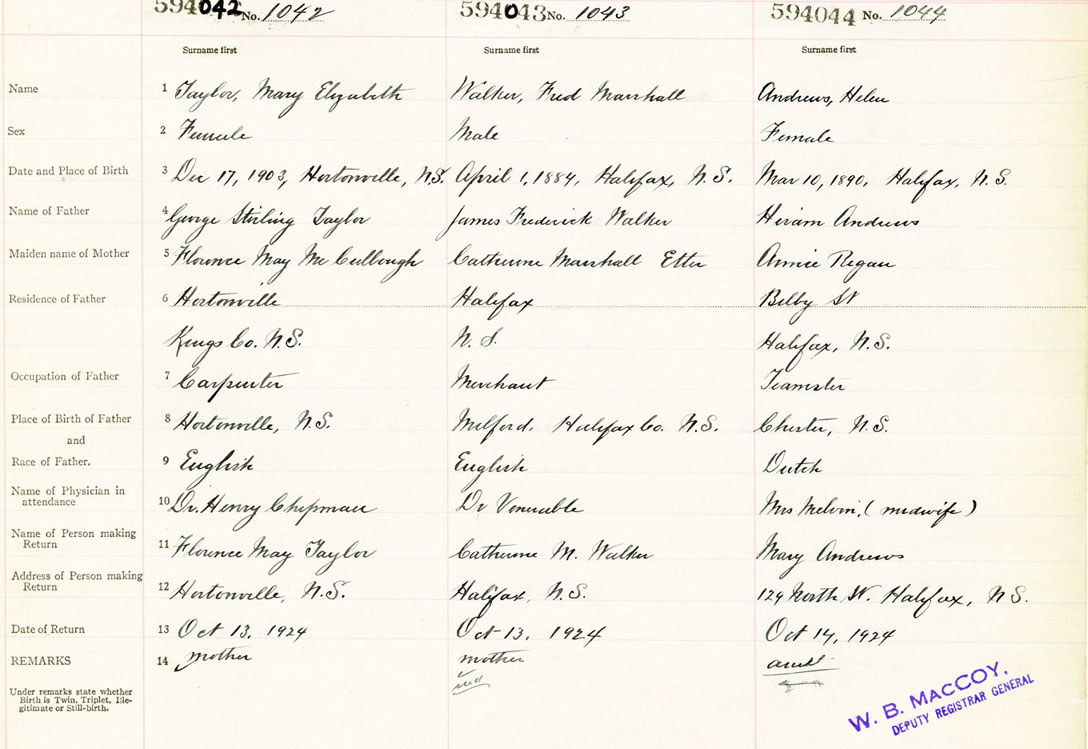 594042 No. 1042 594043 No. 1043 594044 No. 1044
Surname first Surname first Surname first
Name 1 Taylor, Mary Elizabeth Walker, Fred Marshall Andrews, Helen
Sex 2 Female Male Female
Date and Place of Birth 3 Dec 17, 1903, Hortonville, N.S. April 1, 1884, Halifax, N.S. Mar 10, 1890, Halifax, N.S.
Name of Father 4 George Stirling Taylor James Frederick Walker Hiram Andrews
Maiden name of Mother 5 Florence May McCullough Catherine Marshall Etter Annie Regan
Residence of Father 6 Hortonville Halifax Bilby St
Kings Co. N.S. N.S. Halifax, N.S.
Occupation of Father 7 Carpenter Merchant Teamster
Place of Birth of Father 8 Hortonville, N.S. Milford, Halifax Co. N.S. Chester, N.S.
and
Race of Father. 9 English English Dutch
Name of Physician in
attendance 10 Dr. Henry Chipman Dr Venerable Mrs Melvin, (midwife)
Name of Person making
Return 11 Florence May Taylor Catherine M. Walker Mary Andrews
Address of Person making
Return 12 Hortonville, N.S. Halifax, N.S. 124 North St. Halifax, N.S.
Date of Return 13 Oct 13, 1924 Oct 13, 1924 Oct 14, 1924
REMARKS 14 mother mother aunt
Under remarks state whether
Birth is Twin, Triplet, Ille-
gitimate or Still-birth.
W. B. MACCOY,
DEPUTY REGISTRAR GENERAL